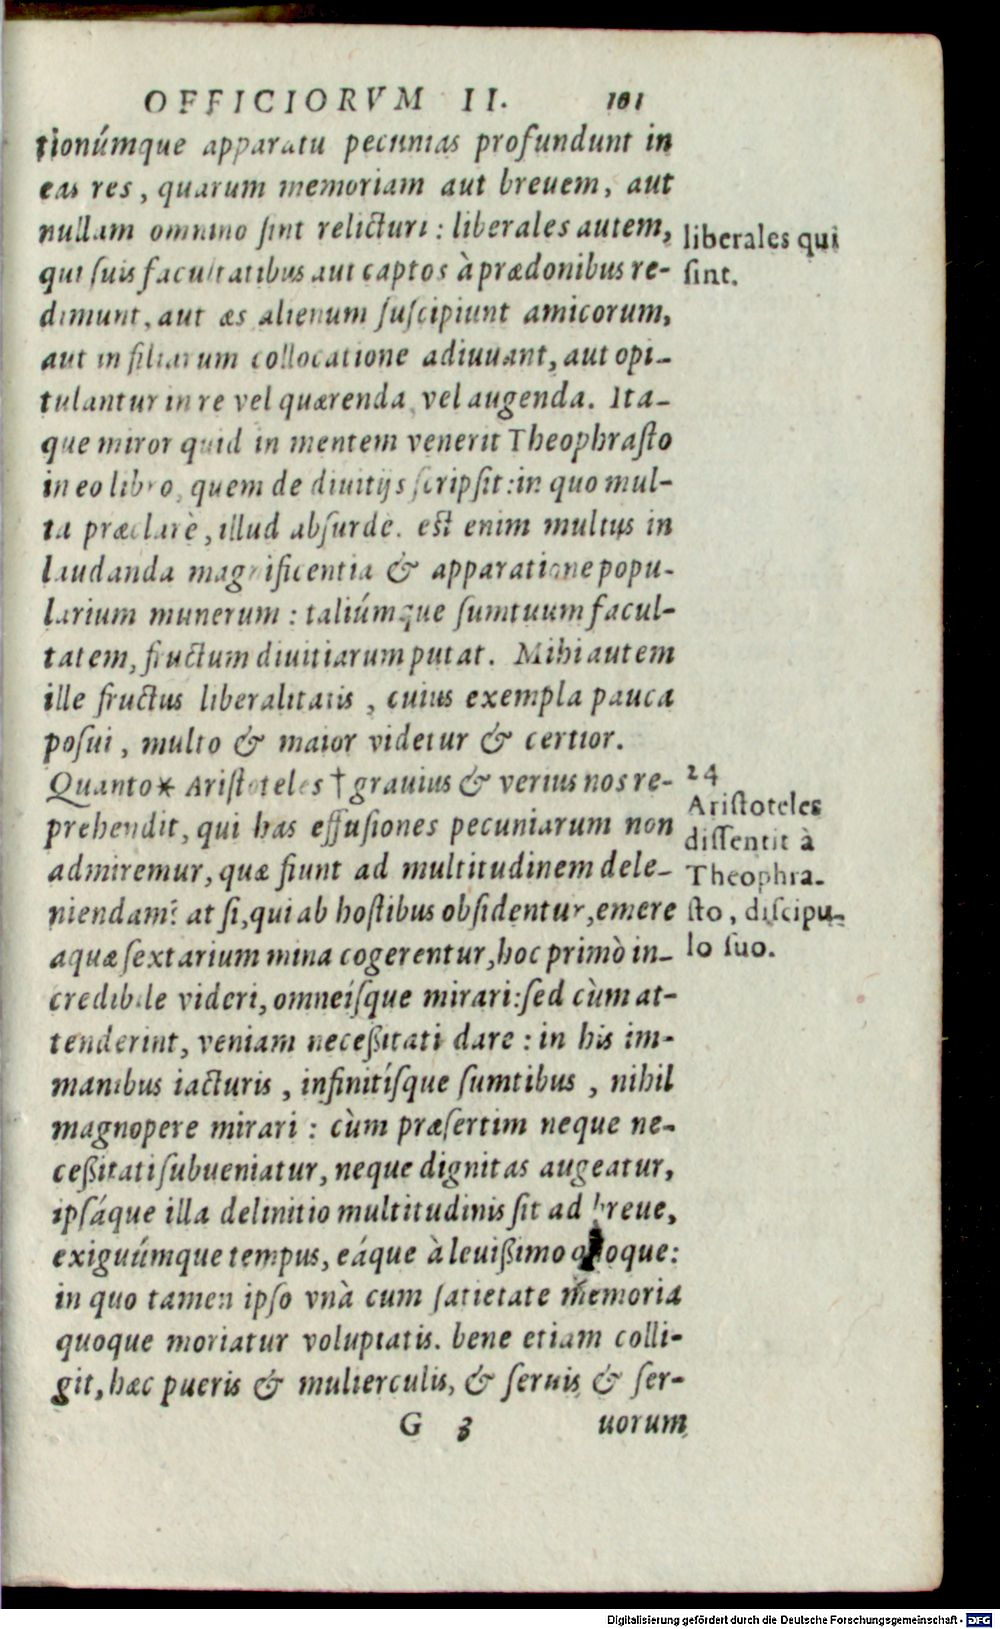 OFFICIORVM II. 101
tionúmque apparatu pecunias profundunt in
eas res, quarum memoriam aut breuem, aut
nullam omnino ſint relicturi: liberales autem,
qui ſuis facultatibus aut captos à prædonibus re-
dimunt, aut æs alienum ſuſcipiunt amicorum,
aut in filiarum collocatione adiuuant, aut opi-
tulantur in re vel quærenda, vel augenda. Ita-
que miror quid in mentem venerit Theophraſto
in eo libro, quem de diuitijs ſcripſit: in quo mul-
ta præclarè, illud abſurde. eſt enim multus in
laudanda magnificentia & apparatione popu-
larium munerum: taliúmque ſumtuum facul-
tatem, fructum diuitiarum putat. Mihi autem
ille fructus liberalitatis, cuius exempla pauca
poſui, multo & maior videtur & certior.
Quanto* Ariſtoteles † grauius & verius nos re-
prehendit, qui has effuſiones pecuniarum non
admiremur, quæ fiunt ad multitudinem dele-
niendam? at ſi, qui ab hoſtibus obſidentur, emere
aquæ ſextarium mina cogerentur, hoc primò in-
credibile videri, omneiſque mirari: ſed cùm at-
tenderint, veniam neceßitati dare: in his im-
manibus iacturis, infinitíſque ſumtibus, nihil
magnopere mirari: cùm præſertim neque ne-
ceßitati ſubueniatur, neque dignitas augeatur,
ipſáque illa delinitio multitudinis ſit ad breue,
exiguúmque tempus, eáque à leuißimo quoque:
in quo tamen ipſo vnà cum ſatietate memoria
quoque moriatur voluptatis. bene etiam colli-
git, hæc pueris & mulierculis, & ſeruis & ſer-
G 3 uorum
liberales qui
ſint.
24
Ariſtoteles
diſſentit à
Theophra-
ſto, diſcipu-
lo ſuo.
Digitalisierung gefördert durch die Deutsche Forschungsgemeinschaft - DFG